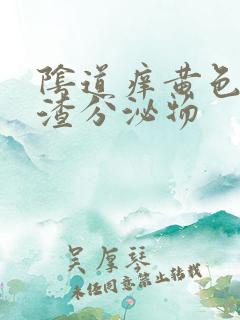 阴道痒黄色
渣分泌物
吴厚琴
未经同意禁止转载